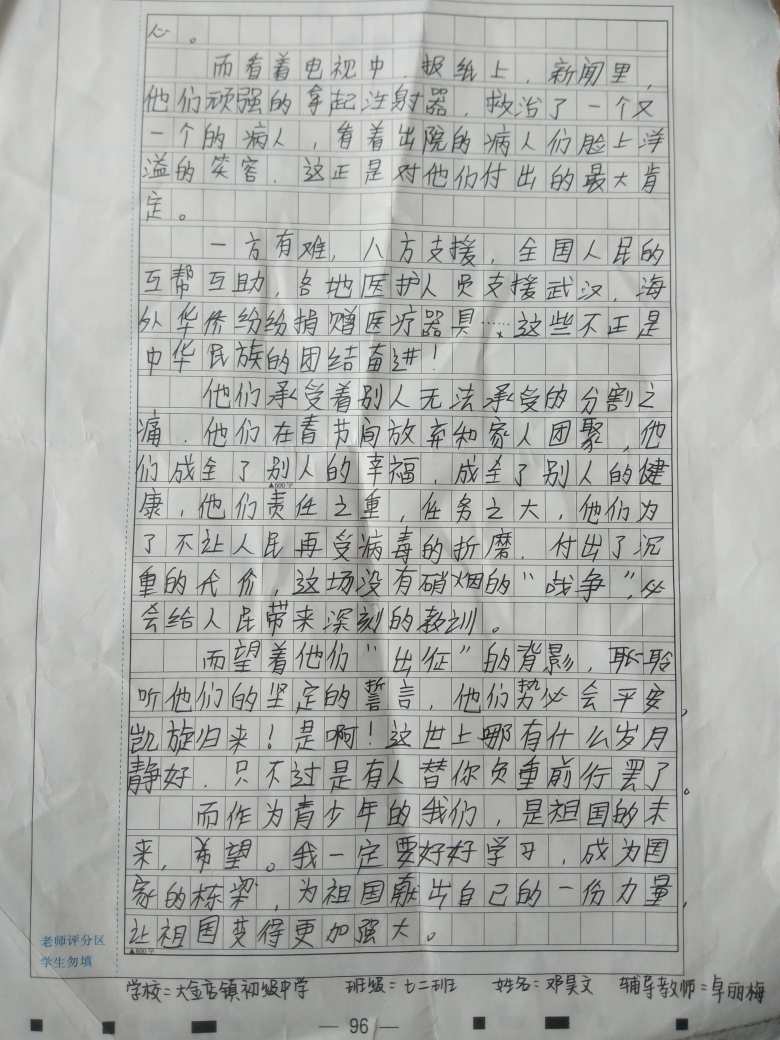 心。
而看着电视中，报纸上，新闻里，
他们顽强的拿起注射器，救治了一个又
一个的病人，看着出院的病人们脸上洋
溢的笑容，这正是对他们付出的最大肯
定。
一方有难，八方支援，全国人民的
互帮互助，各地医护人员支援武汉，海
外华侨纷纷捐赠医疗器具……这些不正是
中华民族的团结奋进！
他们承受着别人无法承受的分割之
痛，他们在春节间放弃和家人团聚，他
们成全了别人的幸福，成全了别人的健
▲500字
康，他们责任之重，任务之大，他们为
了不让人民再受病毒的折磨，付出了沉
重的代价，这场没有硝烟的“战争”，必
会给人民带来深刻的教训。
而望着他们“出征”的背影，聆
听他们的坚定的誓言，他们势必会平安，
凯旋归来！是啊！这世上哪有什么岁月
静好，只不过是有人替你负重前行罢了。
而作为青少年的我们，是祖国的未
来，希望。我一定要好好学习，成为国
家的栋梁，为祖国献出自己的一份力量，
让祖国变得更加强大。
老师评分区
学生勿填
▲800字
学校：大金店镇初级中学 班级：七二班 姓名：邓昊文 辅导教师：卓丽梅
— 96 —